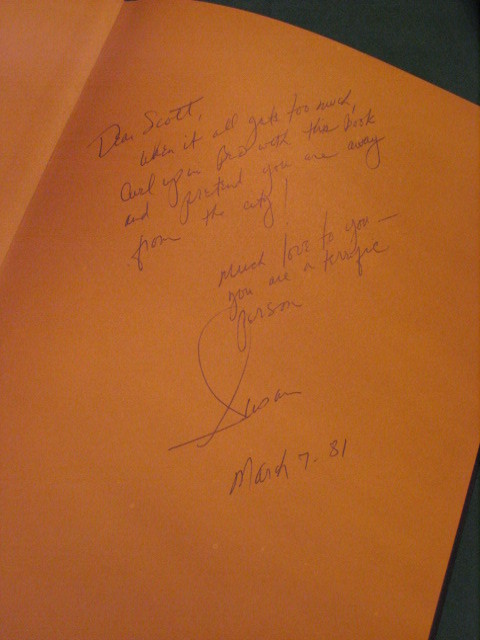 Dear Scott,
When it all gets too much,
Curl up in bed with this book
and pretend you are away
from the city!
Much love to you —
you are a terrific
person
Susan
March 7. 81